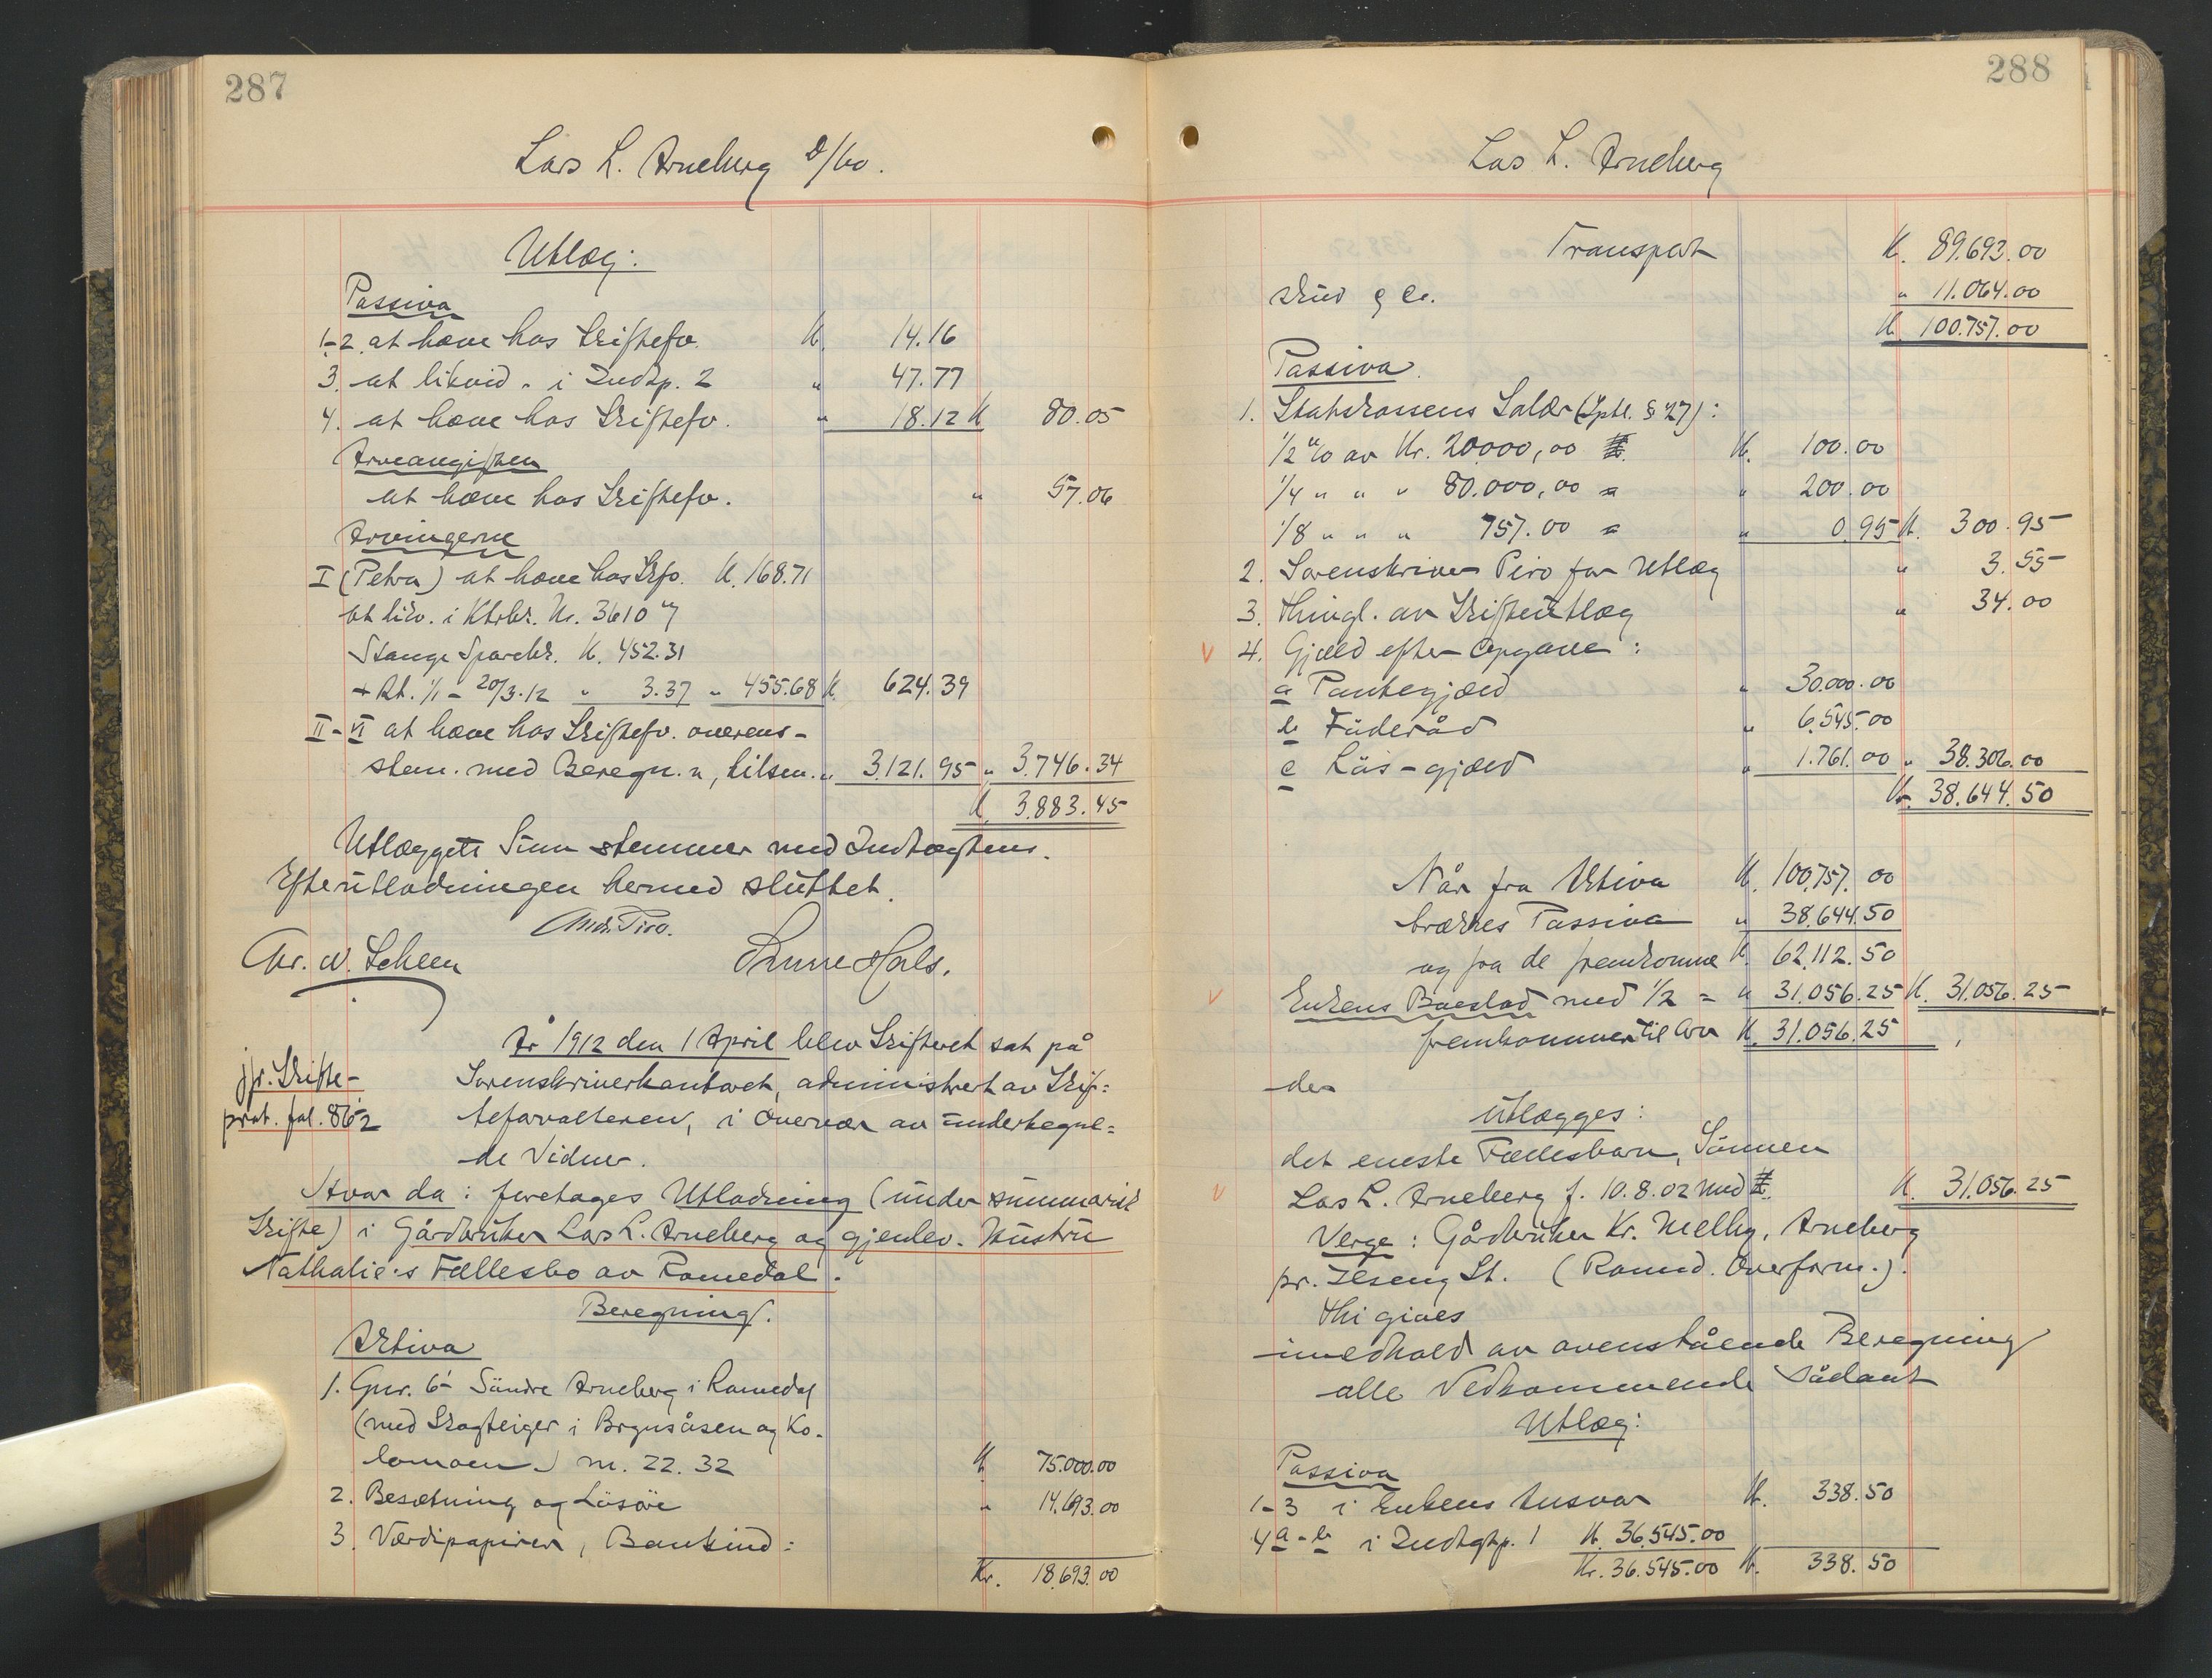 287
Lars L. Arneberg D/bo.
Utlæg:
Passiva
1-2. at hæve hos Skiftefv. K. 14.16
3. at likvid. i Indtp. 2 " 47.77
4. at hæve hos Skiftefv. " 18.12 K 80.05
Arveavgiften
at hæve hos Skiftefv. " 57.06
Arvingerne
I (Petra) at hæve hos Skfv. K. 168.71
at likv. i Ktrbk. Nr. 3610
Stange Sparebk. K. 452.31
+ Rt. 1/1 - 20/3.12 " 3.37 " 455.68 K. 624.39
II-VI at hæve hos Skiftefv. overens-
stem. med Beregn. n, tilsm. " 3.121.95 " 3.746.34
K. 3.883.45
Utlæggets Sum stemmer med Indtægtens.
Efterutlodningen hermed sluttet.
Andr. Piro.
Chr. W. Scheen
Hals.
År 1912 den 1 April blev Skifteret sat på
jfr. Skifte-
Sorenskriverkontoret, administrert av Skif-
prot. fol. 862
teforvalteren, i Overvær av undertegne-
de Vidner.
Hvor da: foretages Utlodning (under summarisk
Skifte) i Gårdbruker Lars L. Arneberg og gjenlev. Hustru
Nathalie's Fællesbo av Romedal.
Beregning.
Aktiva
1. Gnr. 6 Søndre Arneberg i Romedal
(med Skogteiger i Brynsåsen og Ko-
lomoen) m. 22.32 K 75.000.00
2. Besætning og Løsøre " 14.693.00
3. Værdipapirer, Bankind:
Kr. 18.693.00
288
Lars L. Arneberg
Transport K. 89.693.00
skud & Co. " 11.064.00
K. 100.757.00
Passiva.
1. Statskassens Salær (Sptl. § 27):
1/2 % av Kr. 20000,00 K. 100.00
1/4 " " " 80.000,00 = " 200.00
1/8 " " " 757.00 = " 0.95 K. 300.95
2. Sorenskriver Piro for Utlæg " 3.55
3. Thingl. av Skifteutlæg " 34.00
4. Gjæld efter Opgave:
a Pantegjæld " 30.000.00
b Føderåd " 6.545.00
c Løs-gjæld " 1.761.00 " 38.306.00
Kr. 38.644.50
Når fra Aktiva K. 100.757.00
trækkes Passiva " 38.644.50
og fra de fremkomne K. 62.112.50
Enkens Boeslod med 1/2 = " 31.056.25 K. 31.056.25
fremkommer til Arv K. 31.056.25
der
Utlægges:
det eneste Fællesbarn, Sønnen
Lars L. Arneberg f. 10.8.02 med K. 31.056.25
Verge: Gårdbruker Kr. Melby, Arneberg
pr. Ilseng St. (Romed. Overform.).
Thi gives
i medhold av ovenstående Beregning
alle Vedkommende sådant
Utlæg:
Passiva
1-3 i Enkens Ansvar K. 338.50
4 a-b i Indtgtp. 1 K. 36.545.00
Kr. 36.545.00 K. 338.50